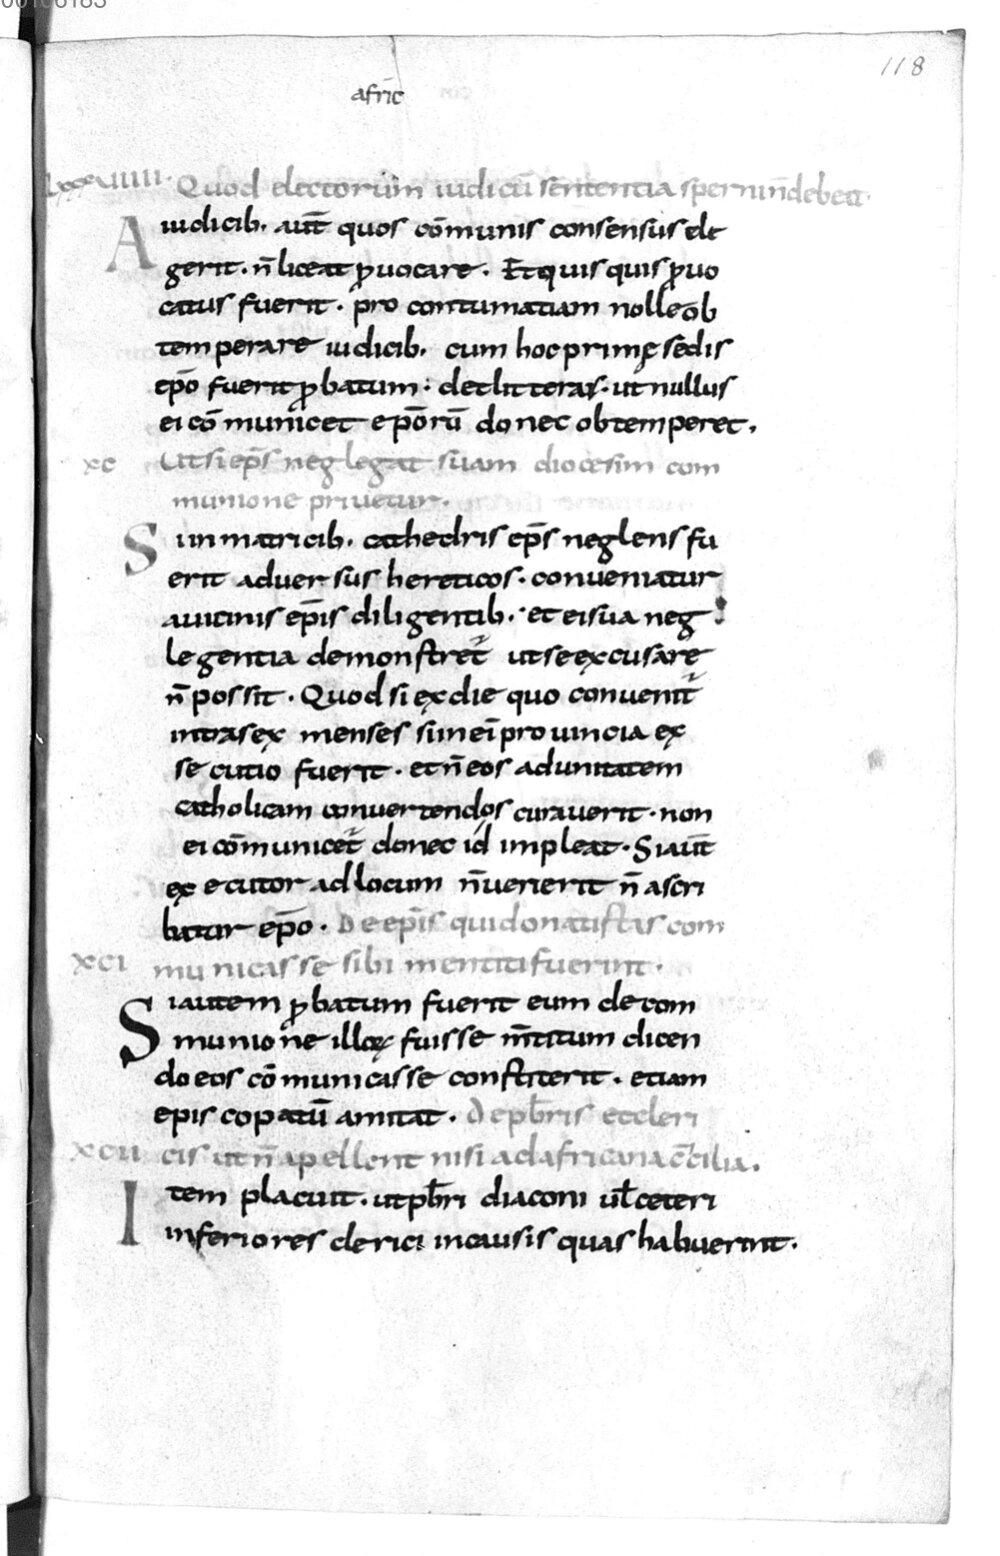 118
afric̄
Lxxxuiiii. Quod electorum iudicū sententia sperni n̄ debeat.
A iudicib. aut̄ quos cōmunis consensus ele
gerit. n̄ liceat ꝓuocare. Et quis quis ꝓuo
catus fuerit. pro contumatiam nolle ob
temperare iudicib. cum hoc primę sedis
ep̄o fuerit ꝓbatum: det litteras. ut nullus
ei cōmunicet ep̄orū donec obtemperet.
xc Ut si ep̄s neglegat suam diocesim com
munione priuetur.
S i in matricib. cathedris ep̄s neglens fu
erit aduersus hereticos. conueniatur
a uicinis ep̄is diligentib. et ei sua neg
legentia demonstret̄ ut se excusare
n̄ possit. Quod si ex die quo conuenit̄
intra sex menses si in ei prouincia ex
secutio fuerit. et n̄ eos ad unitatem
catholicam conuertendos curauerit. non
ei cōmunicet̄ donec id impleat. Si aut̄
executor ad locum n̄ uenerit n̄ ascri
batur ep̄o. De ep̄is qui donatistas com
xci municasse sibi mentiti fuerint.
S i autem ꝓbatum fuerit eum de com
munione illoꝝ fuisse m̄titum dicen
do eos cōmunicasse constiterit. etiam
episcopatū amitat. De pb̄ris et cleri
xcii cis ut n̄ apellent nisi ad africana c̄cilia.
I tem placuit. ut pb̄ri diaconi ul̄ ceteri
inferiores clerici in causis quas habuerint.